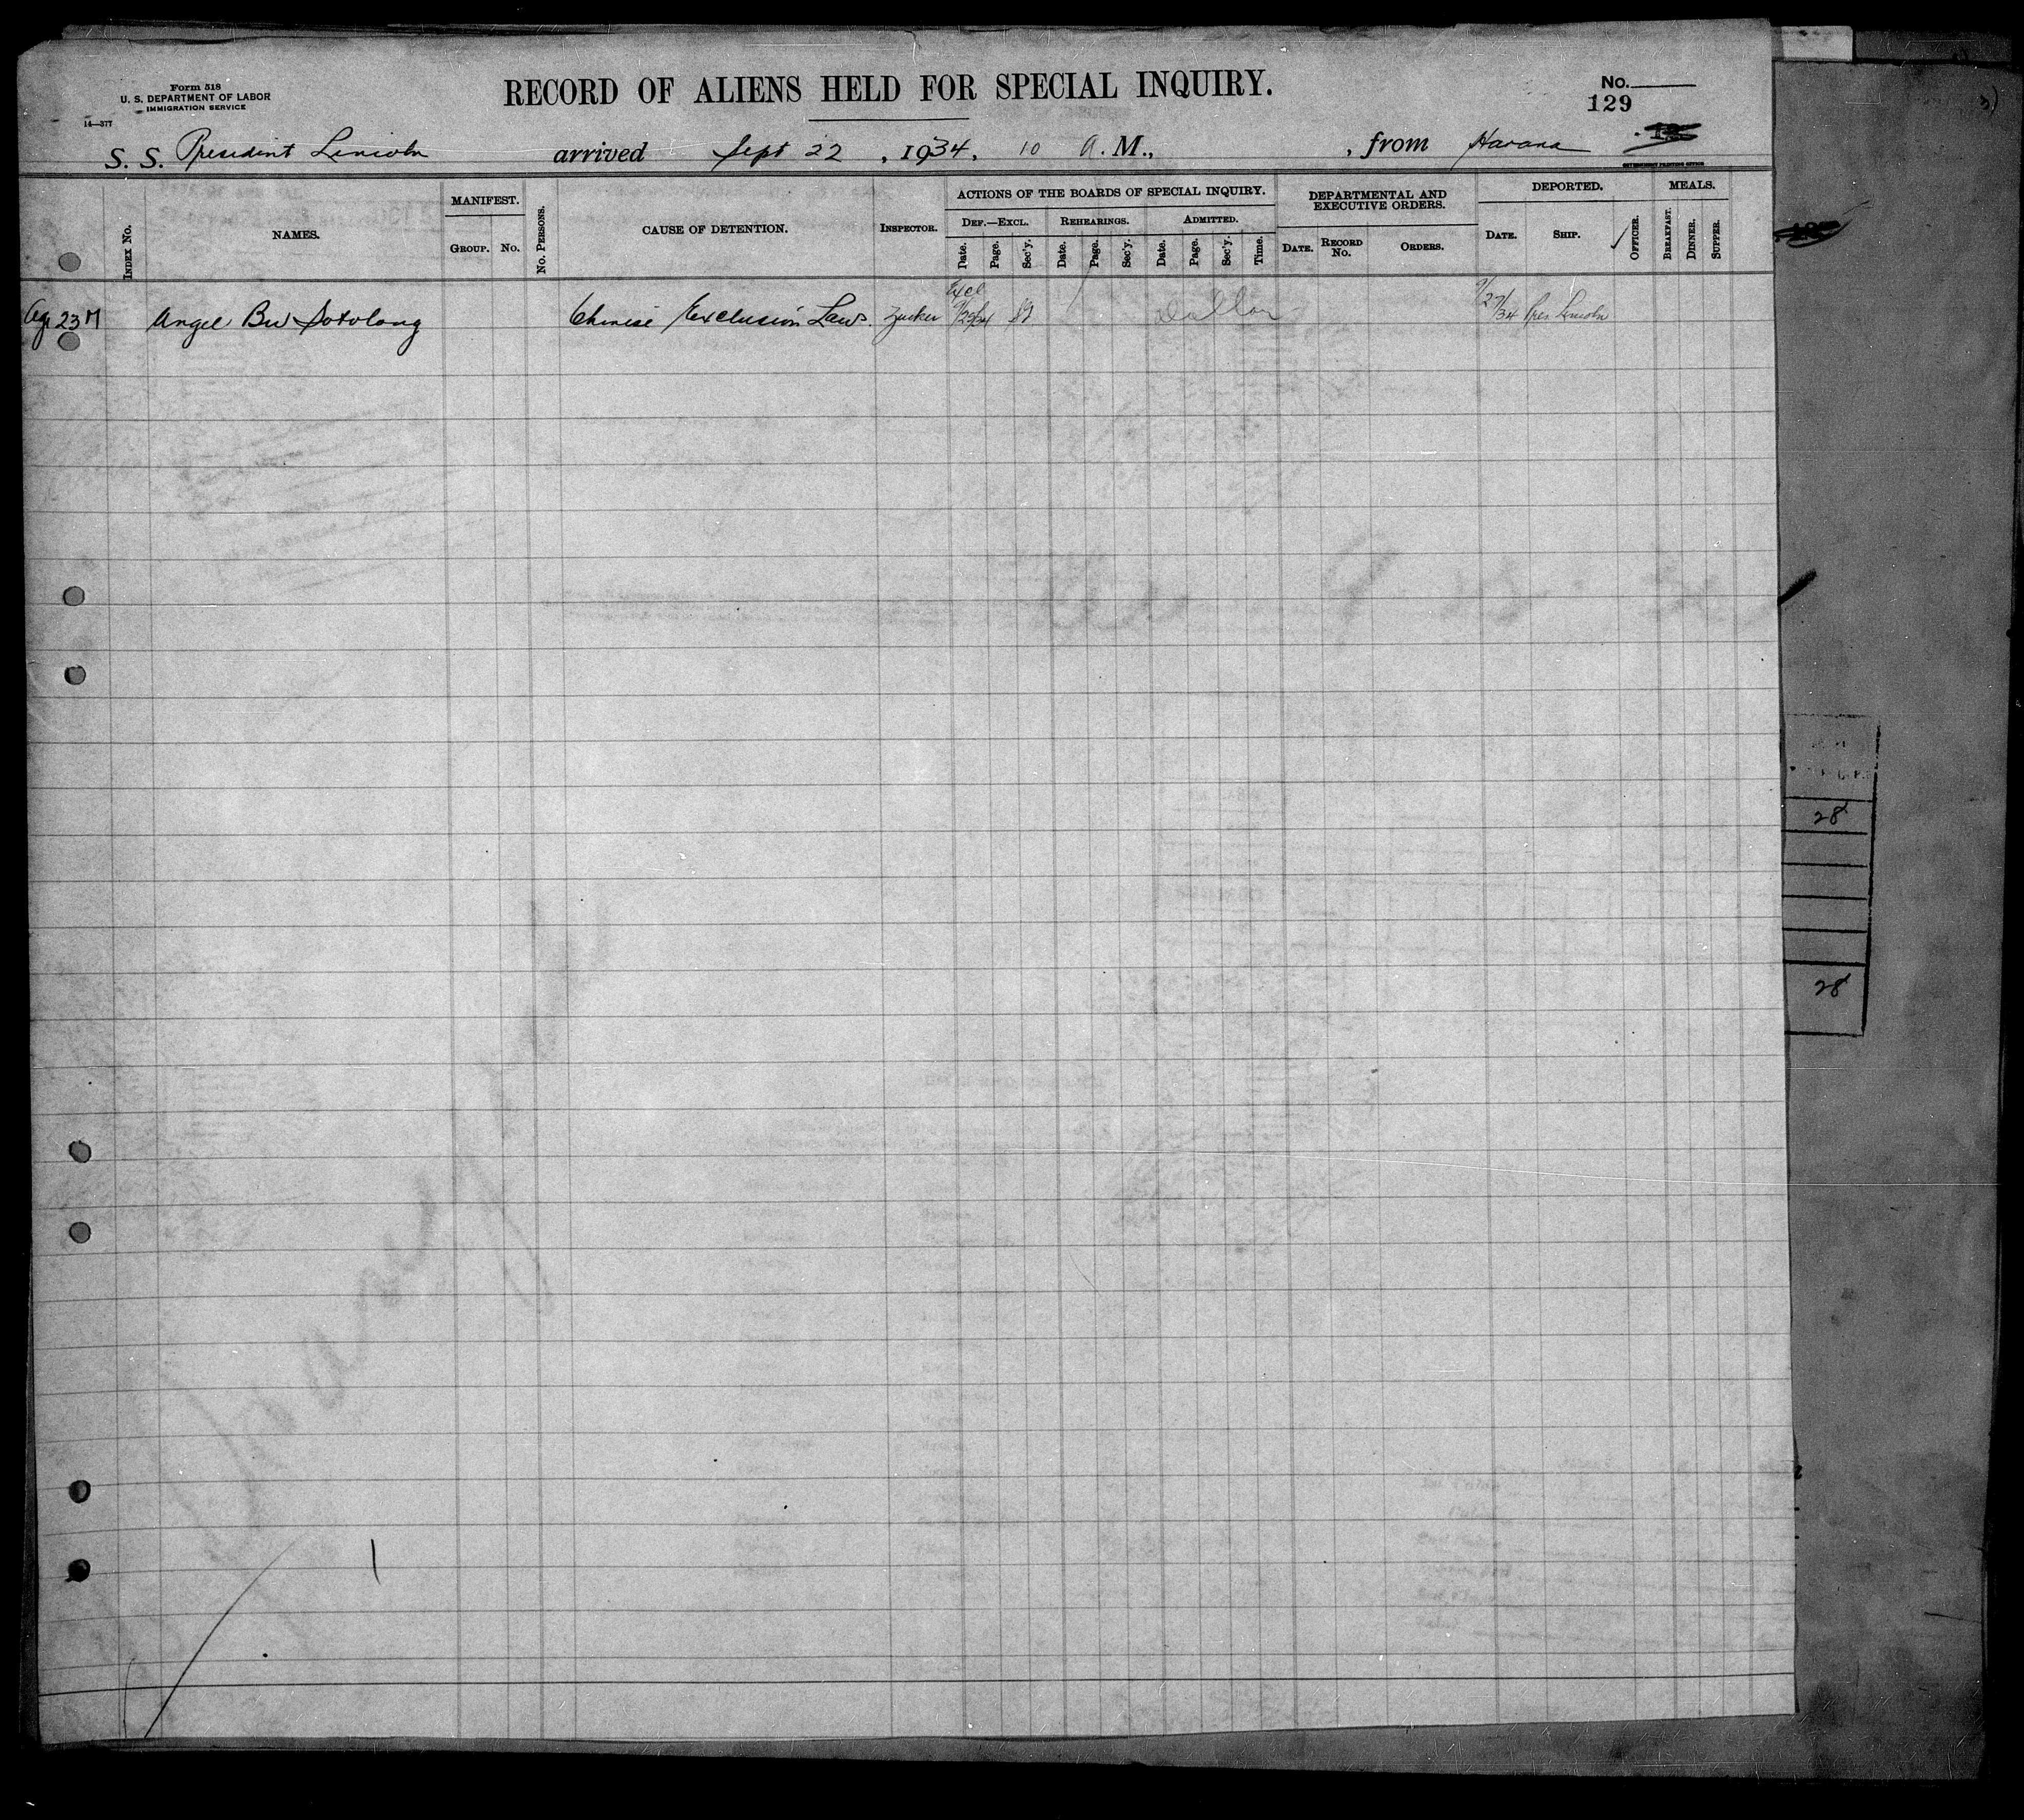 Form 518
U. S. DEPARTMENT OF LABOR
IMMIGRATION SERVICE
14—377
RECORD OF ALIENS HELD FOR SPECIAL INQUIRY.
No.
129
S. S. President Lincoln arrived Sept 22, 1934, 10 A. M., , from Havana
GOVERNMENT PRINTING OFFICE
INDEX No.
NAMES.
MANIFEST.
GROUP. No.
No. PERSONS.
CAUSE OF DETENTION.
INSPECTOR.
ACTIONS OF THE BOARDS OF SPECIAL INQUIRY.
DEF.—EXCL. REHEARINGS. ADMITTED.
Date. Page. Sec'y. Date. Page. Sec'y. Date. Page. Sec'y. Time.
DEPARTMENTAL AND EXECUTIVE ORDERS.
DATE. RECORD No. ORDERS.
DEPORTED.
DATE. SHIP. OFFICER.
MEALS.
BREAKFAST. DINNER. SUPPER.
Age 23 M Angel Bu Sotolong Chinese Exclusion Laws. Zucker Excl Dollar 9/27/34 Pres Lincoln
28
28
1